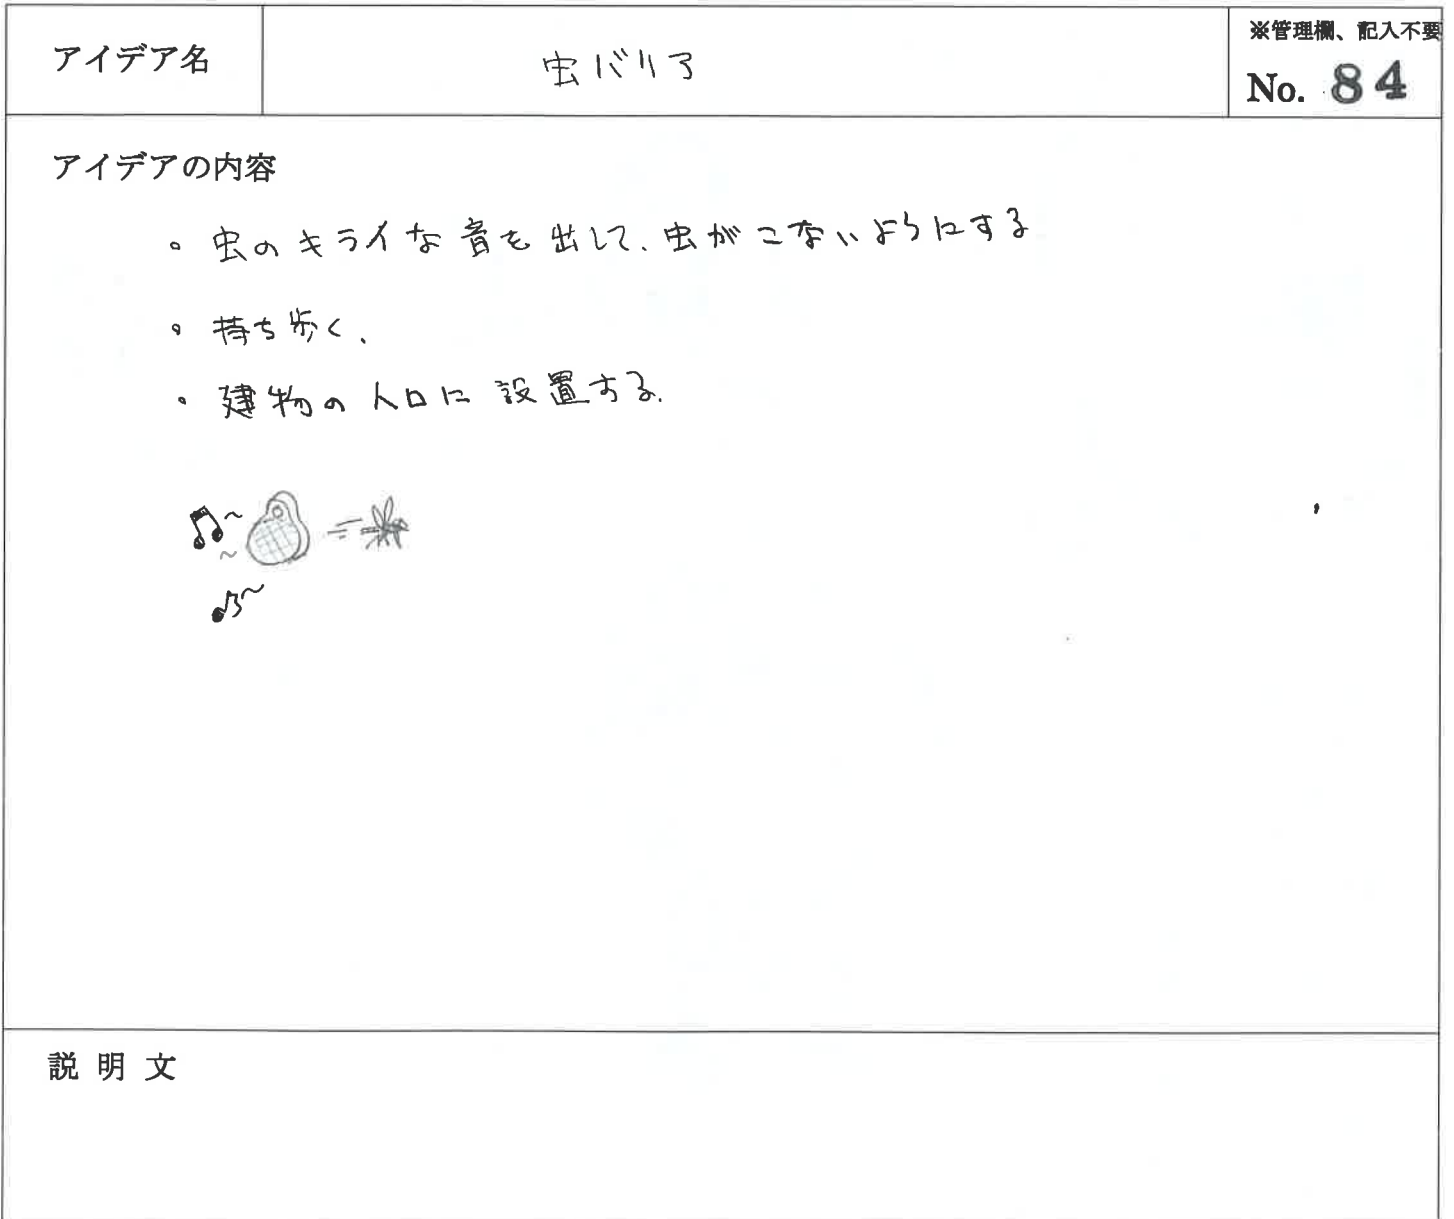 アイデア名
虫バリア
※管理欄、記入不要
No. 84
アイデアの内容
。虫のキライな音を出して、虫がこないようにする
。持ち歩く、
・建物の入口に設置する。
説 明 文